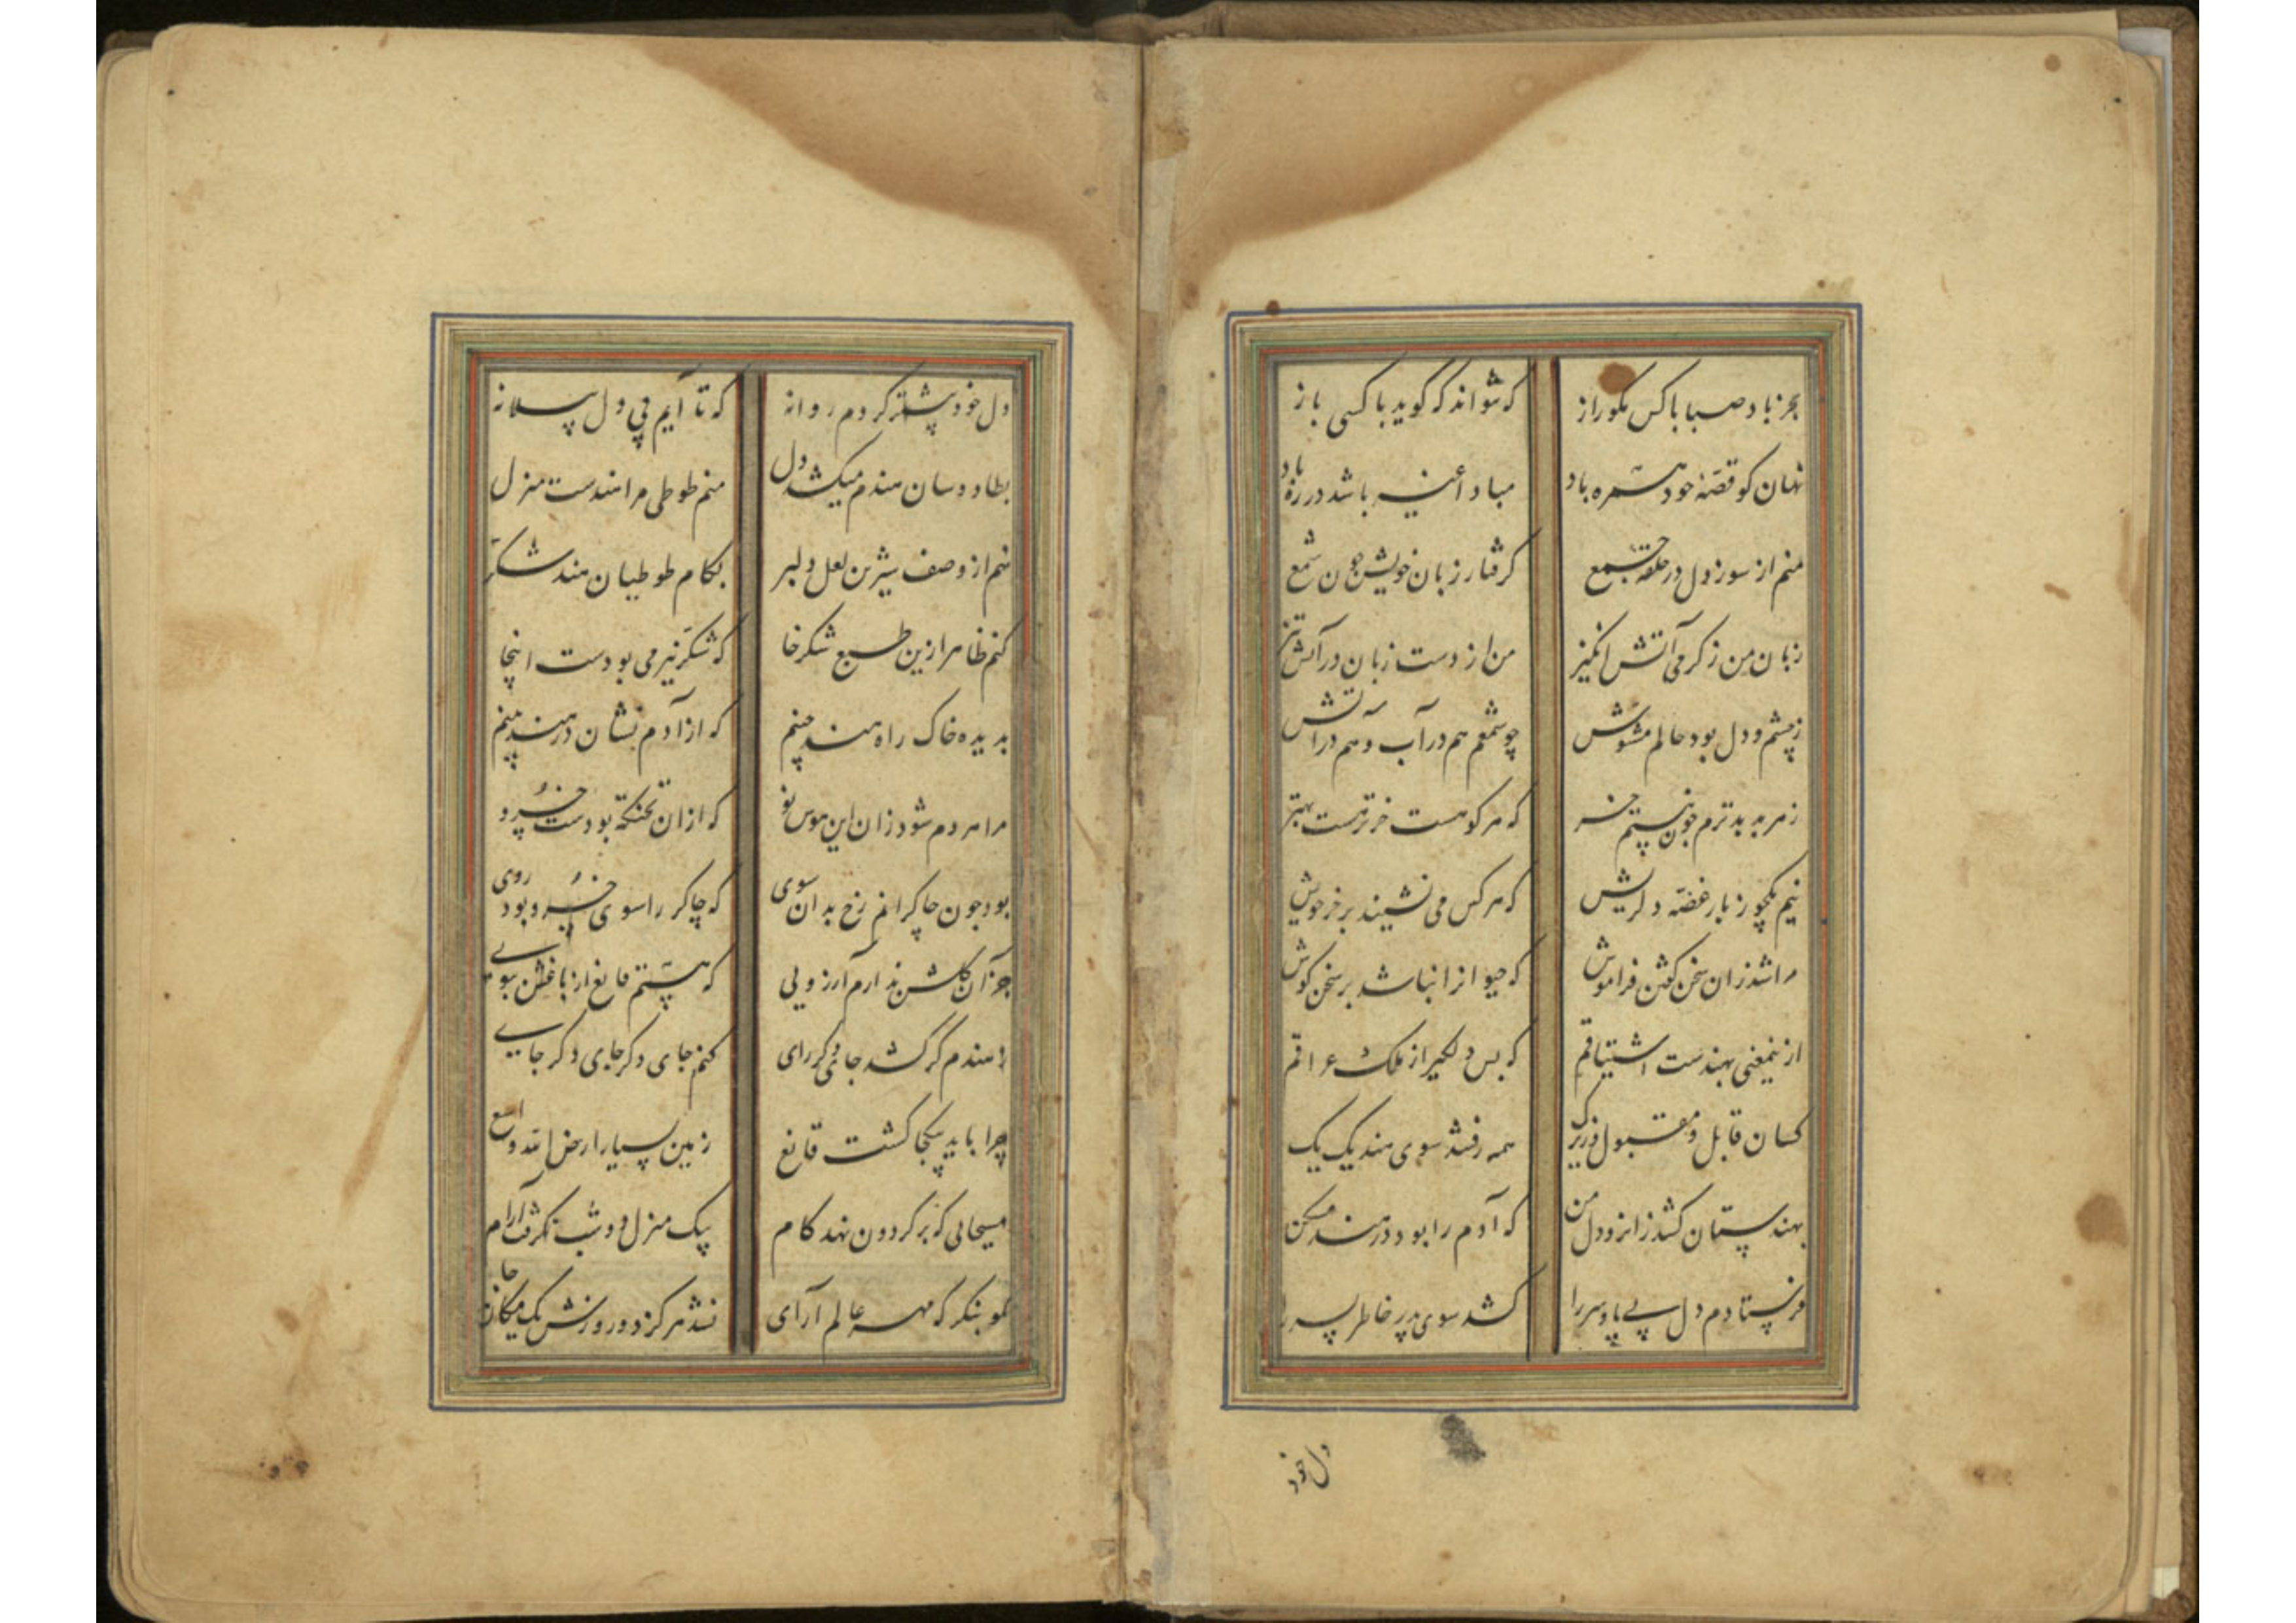 بجز باد صبا با کس مکو راز که نتواند که گوید با کسی باز
نهان کو قصّه خود همره باد مباد اغیر باشد در ره باد
منم از سوز دل در حلقه جمع گرفتار زبان خویش چون شمع
زبان من ز گرمی آتش انگیز من از دست زبان در آتش تیز
ز چشم و دل بود حالم مشوّش چو شمعم هم در آب و هم در آتش
ز هر بد بدترم چون نیستم خر که هر کو هست خرتر هست بهتر
نیم همچو ز بار غصّه دلریش که هر کس می نشیند بر خر خویش
مرا شد زان سخن گفتن فراموش که حیوانرا نباشد بر سخن گوش
از ینمعنی بهندست اشتیاقم که بس دلگیر از ملک عراقم
کسان قابل و مقبول و زیرک همه رفتند سوی هند یک یک
بهندستان کشد زانرو دل من که آدم را بود در هند مسکن
فرستادم دل بی پا و سر را کشد سوی پدر خاطر پسر را
دل خود
دل خود پیشتر کردم روانه که تا آیم پی دل
بطاووسان هندم میکشد دل منم طوطی مرا هندست منزل
منم از وصف شیرین لعل دلبر بکام طوطیان هند شکّر
کنم ظاهر ازین طبع شکرخا که شکّر نیز می بودست اینجا
بدیده خاک راه هند چینم که از آدم نشان در هند بینم
مرا هر دم شود زان این هوس نو که از ان تختگه بودست خسرو
بود چون چاکرانم رخ بدان سوی که چاکر را سوی خسرو بود روی
جز آن گلشن ندارم آرزویی که هستم قانع از باغش ببویی
ز هندم گر کشد جای دگر رای کنم جای دگر جای دگر جایی
چرا باید بیکجا گشت قانع زمین بسیار ارض الله واسع
مسیحایی که بر گردون نهد گام بیک منزل دو شب نگرفت آرام
نکو بنگر که مهر عالم آرای نشد هرگز دو روزش یک مکان جا